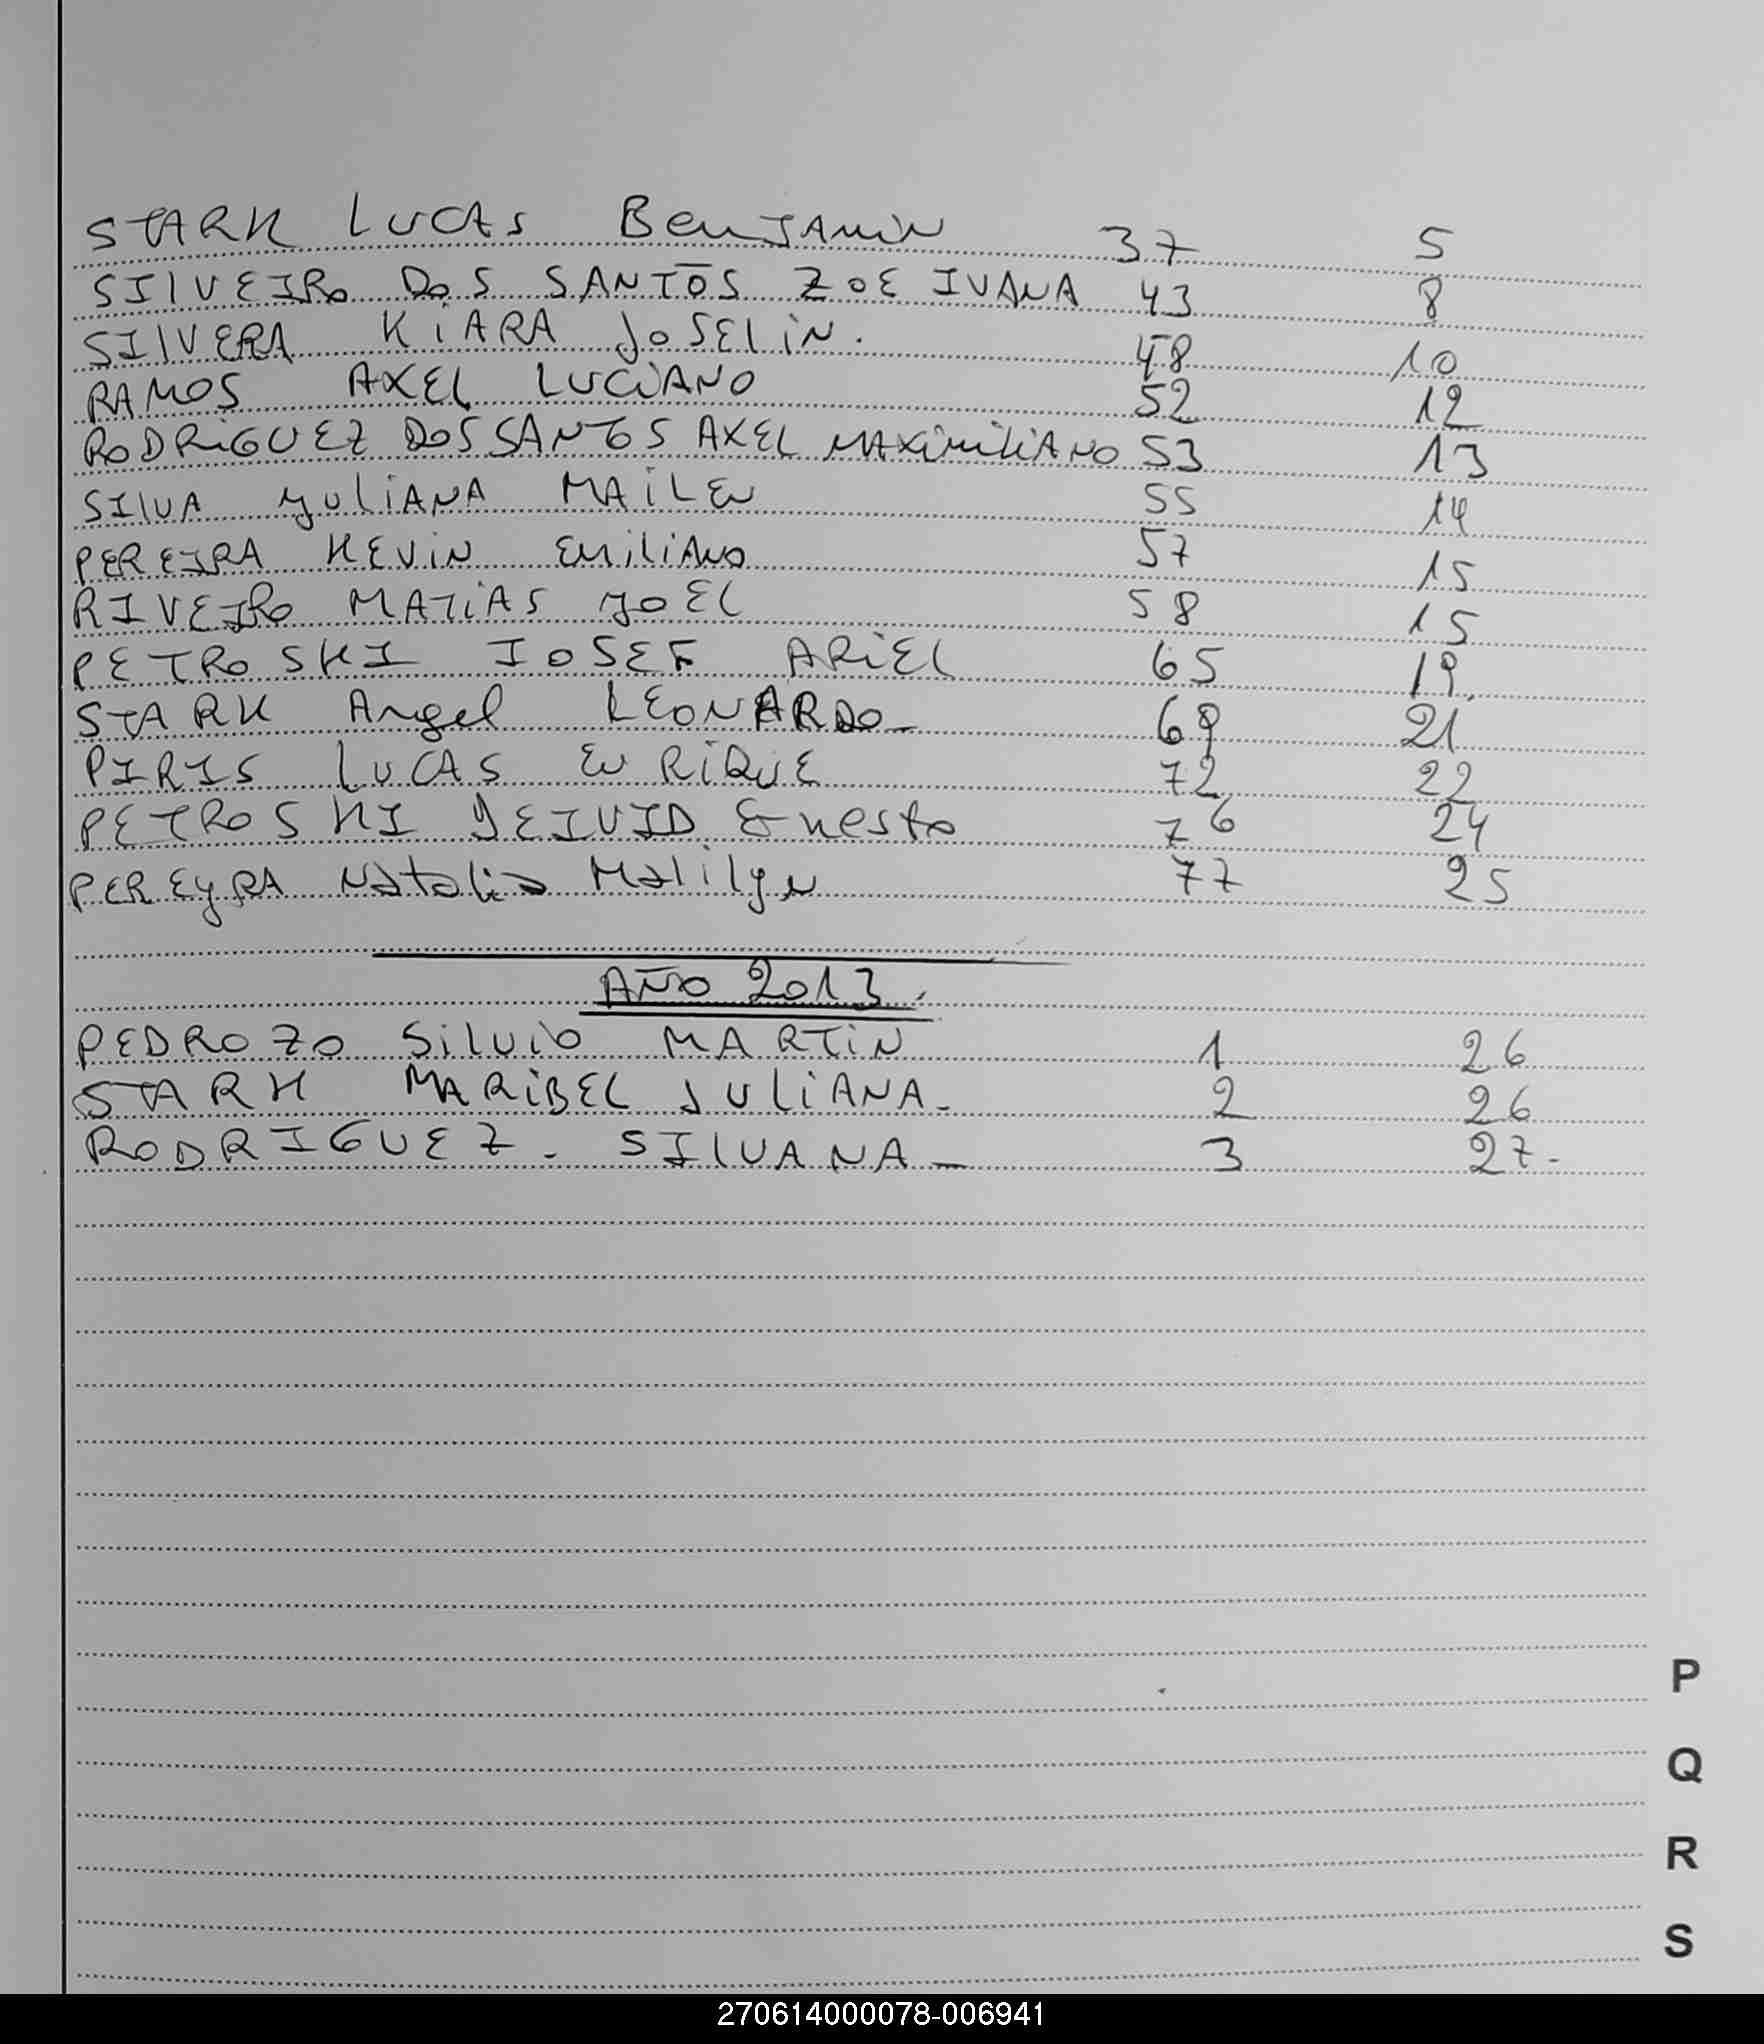 STARK LUCAS BenJAMiN 37 5
SILVEIRO DOS SANTOS ZOE IVANA 43 8
SILVERA KIARA JOSELIN. 48 10
RAMOS AXEL LUCIANO 52 12
RODRIGUEZ DOS SANTOS AXEL MAXIMILIANO 53 13
SILVA YULIANA MAILEN 55 14
PEREIRA KEVIN EMILIANO 57 15
RIVEIRO MATIAS YOEL 58 15
PETROSKI IOSEF ARIEL 65 19.
STARK Angel LEONARDO- 69 21
PIRIS LUCAS ENRIQUE 72 22
PETROSKI YEIVID Ernesto 76 24
PEREYRA Natalia Malilyn 77 25
AÑO 2013.
PEDROZO Silvio MARTIN 1 26
STARK MARIBEL JULIANA- 2 26
RODRIGUEZ - SILVANA - 3 27-
P
Q
R
S
270614000078-006941